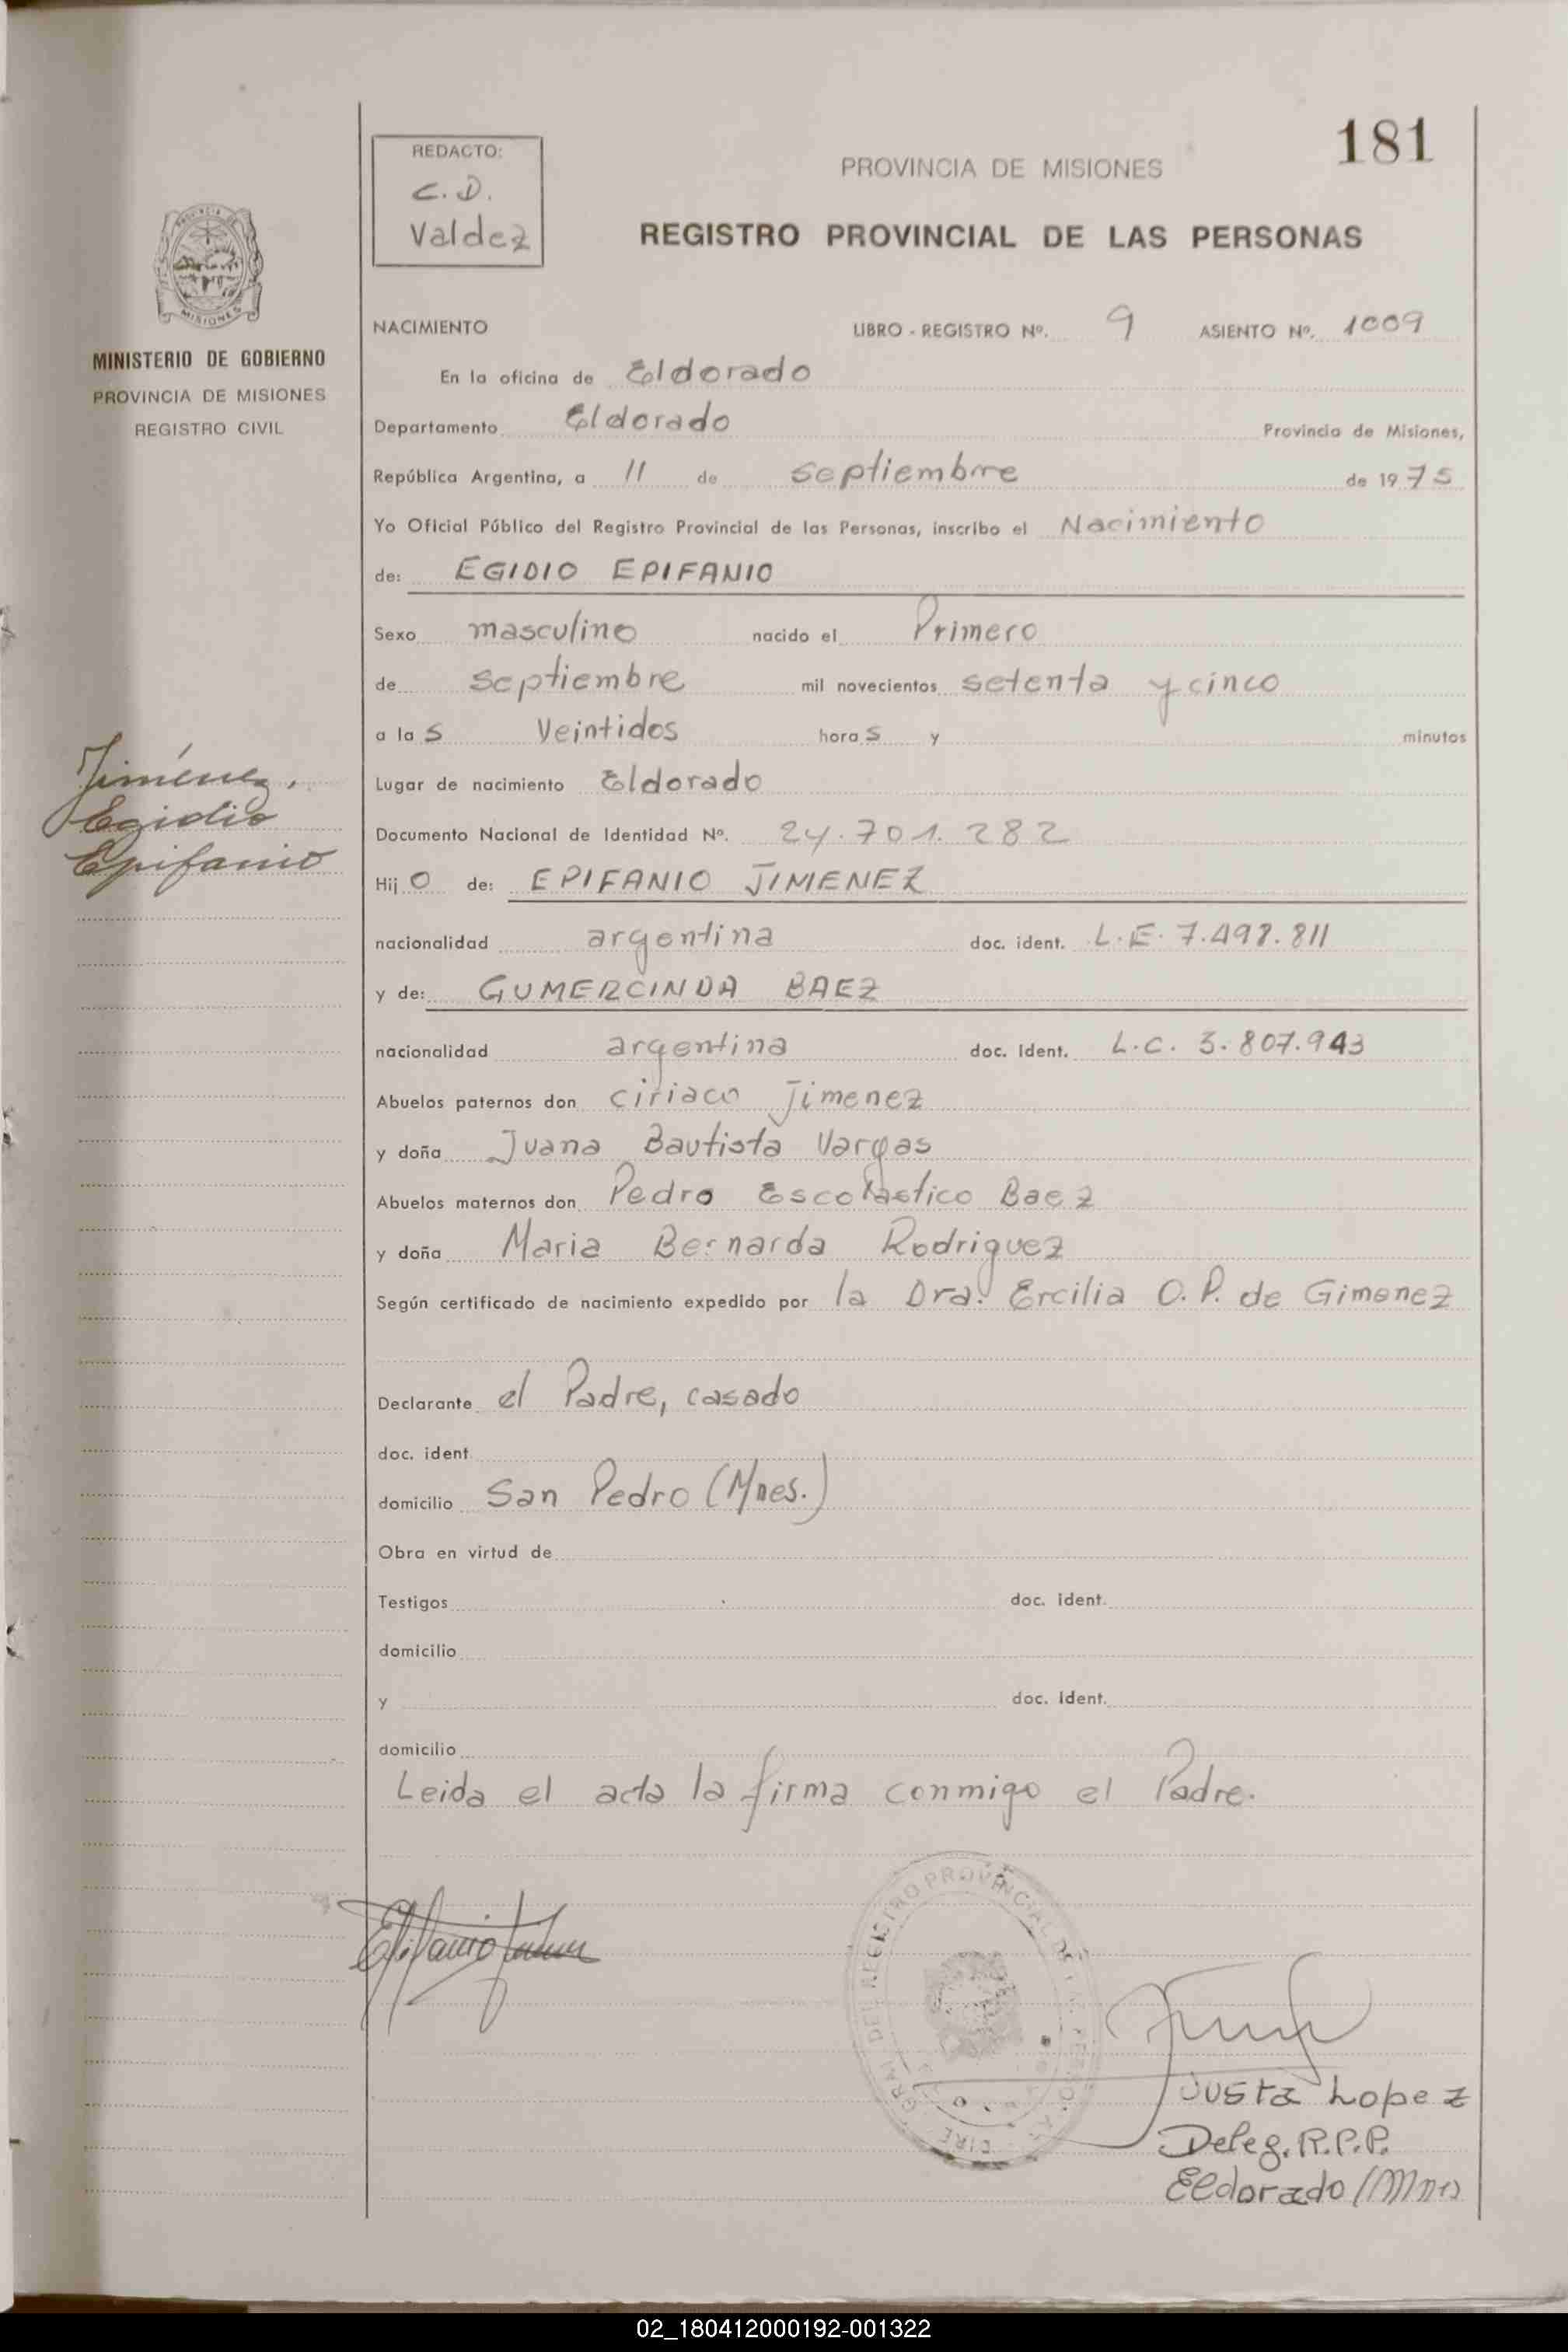 181
REDACTO:
C. D.
Valdez
PROVINCIA DE MISIONES
REGISTRO PROVINCIAL DE LAS PERSONAS
MISIONES
MINISTERIO DE GOBIERNO
PROVINCIA DE MISIONES
REGISTRO CIVIL
NACIMIENTO LIBRO - REGISTRO Nº. 9 ASIENTO Nº. 1009
En la oficina de Eldorado
Departamento Eldorado Provincia de Misiones,
República Argentina, a 11 de septiembre de 1975
Yo Oficial Público del Registro Provincial de las Personas, inscribo el Nacimiento
de: EGIDIO EPIFANIO
Sexo masculino nacido el Primero
de septiembre mil novecientos setenta y cinco
a las Veintidos horas y minutos
Jiménez,
Egidio
Epifanio
Lugar de nacimiento Eldorado
Documento Nacional de Identidad Nº. 24.701.282
Hijo de: EPIFANIO JIMENEZ
nacionalidad argentina doc. ident. L.E. 7.498.811
y de: GUMERCINDA BAEZ
nacionalidad argentina doc. Ident. L.C. 3.807.943
Abuelos paternos don ciriaco Jimenez
y doña Juana Bautista Vargas
Abuelos maternos don Pedro Escolastico Baez
y doña Maria Bernarda Rodriguez
Según certificado de nacimiento expedido por la Dra. Ercilia O. P. de Gimenez
Declarante el Padre, casado
doc. ident
domicilio San Pedro (Mnes.)
Obra en virtud de
Testigos doc. ident.
domicilio
y doc. Ident.
domicilio
Leida el acta la firma conmigo el Padre.
Epifanio
DEL REGISTRO PROVINCIAL DE
Justa Lopez
Deleg. R.P.P.
Eldorado (Mnes
02_180412000192-001322